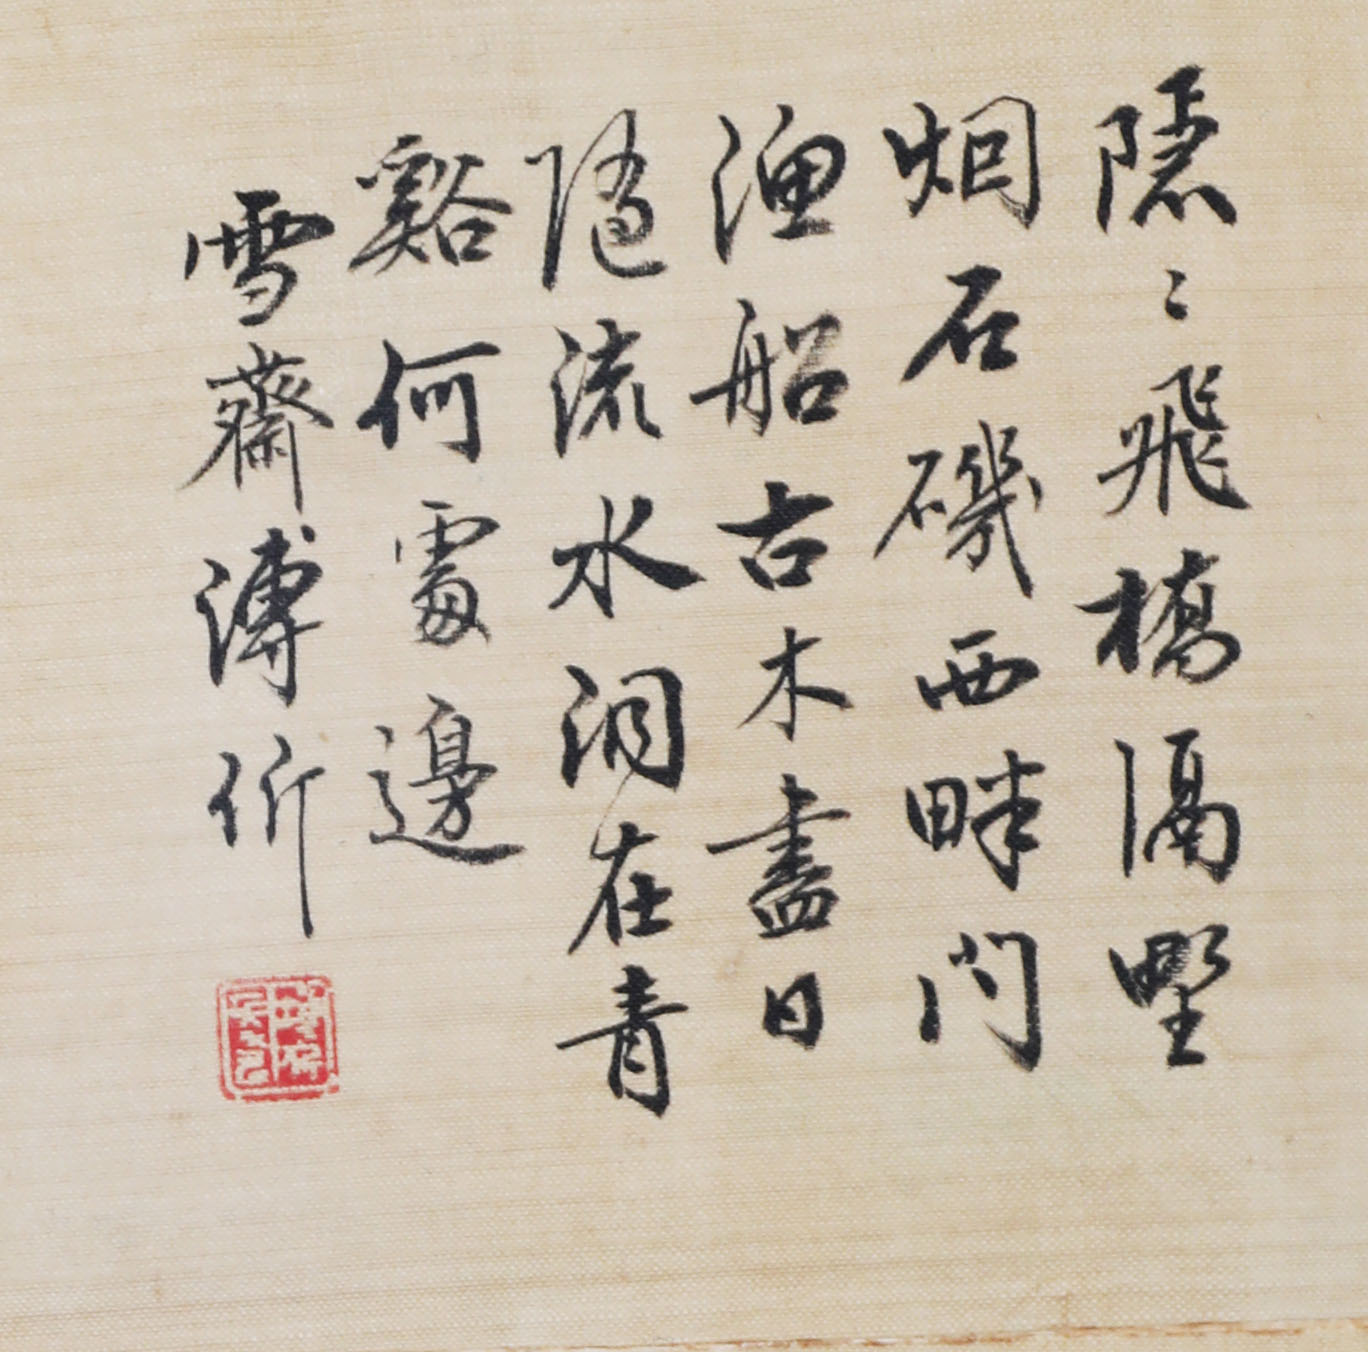 隱〻飛橋隔野
烟石磯西畔問
漁船古木盡日
隨流水洞在青
谿何處邊
雪齋溥伒